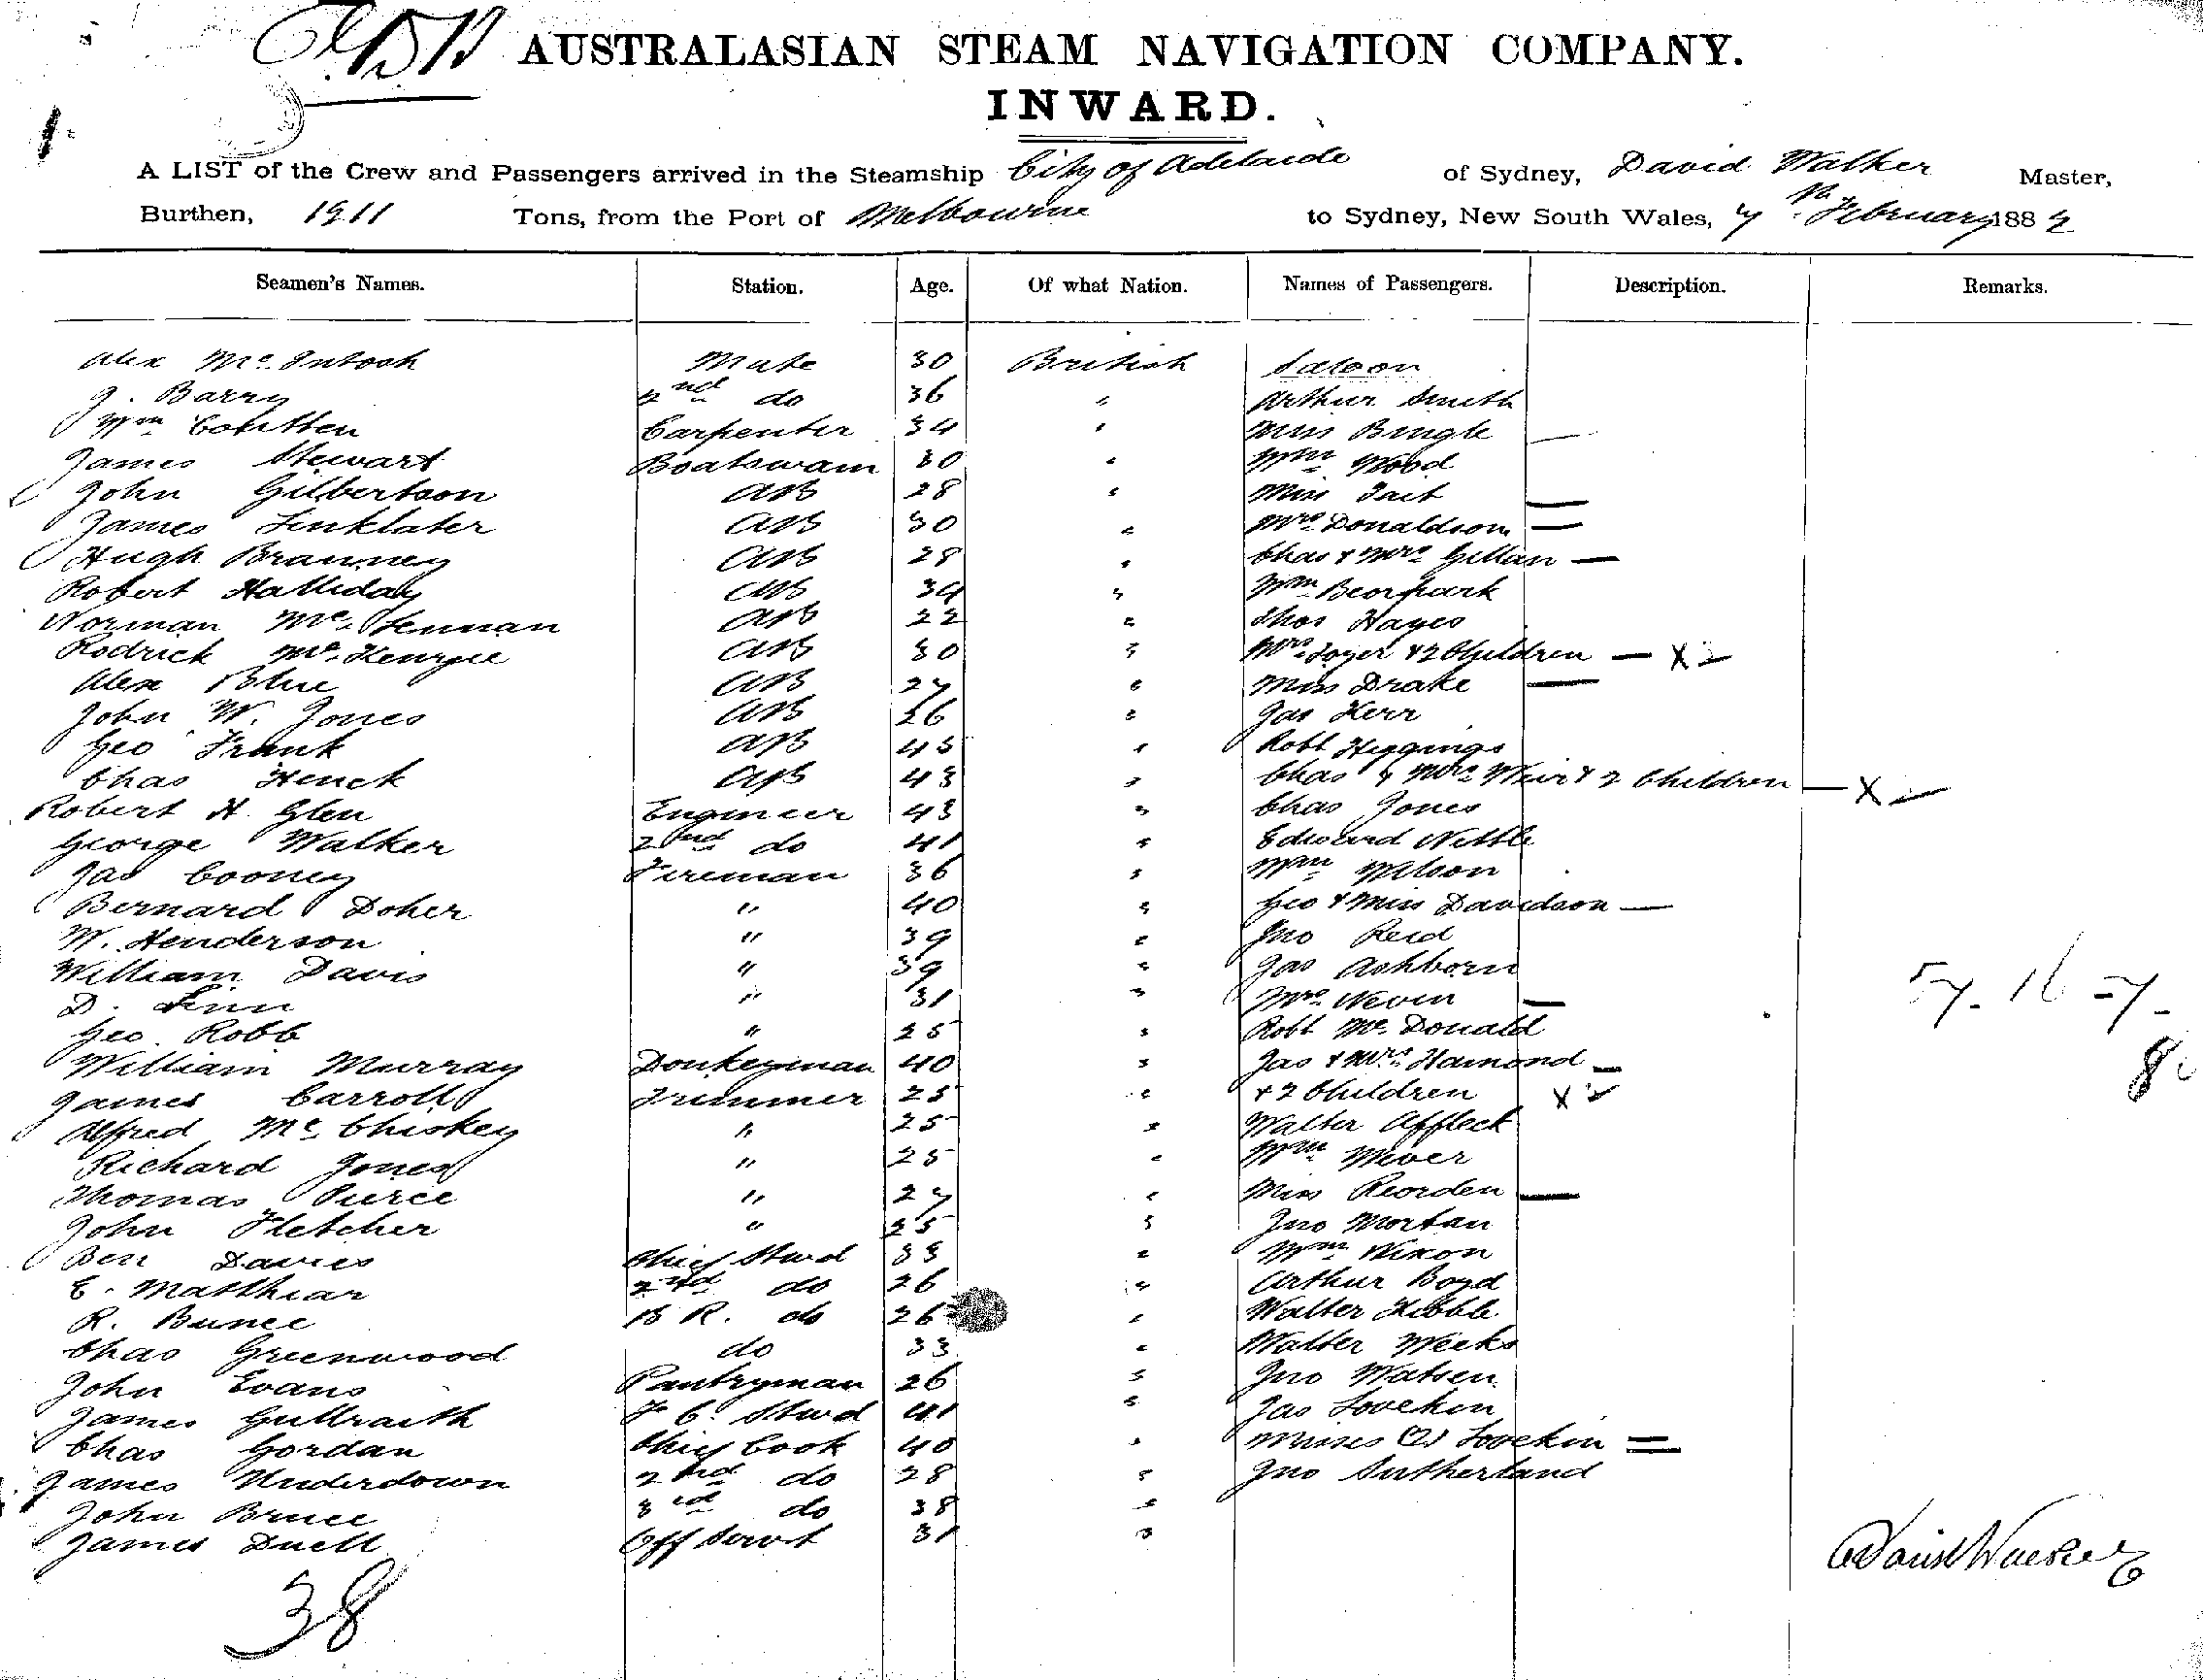 AUSTRALASIAN STEAM NAVIGATION COMPANY.
INWARD.
A LIST of the Crew and Passengers arrived in the Steamship City of Adelaide of Sydney, David Walker Master,
Burthen, 1211 Tons, from the Port of Melbourne to Sydney, New South Wales, 7th February 1882
Seamen's Names. Station. Age. Of what Nation. Names of Passengers. Description. Remarks.
Alex McIntosh Mate 30 British Saloon
J. Barry 2nd do 36 " Arthur Smith
Wm Carpenter 34 " Miss Bingle —
James Stewart Boatswain 30 " Wm Wood
John Gilbertson AB 28 " Miss Tait —
James Linklater AB 30 " Mrs Donaldson —
Hugh Branney AB 28 " Chas & Mrs Gillian —
Robert Halliday AB 34 " Wm Bearpark
Norman McLennan AB 22 " Thos Hayes
Rodrick McKenzie AB 30 " Mrs & 2 Children — X 2
Alex Blue AB 27 " Miss Drake —
John W. Jones AB 26 " Jas Kerr
Geo Frank AB 43 " Robt Higgings
Chas Henck AB 43 " Chas & Mrs Weir & 2 Children — X 2
Robert H. Glen Engineer 43 " Chas Jones
George Walker 2nd do 41 " Edward Nettle
Jas Cooney Fireman 36 " Wm Wilson
Bernard Doher " 40 " Geo & Miss Davidson —
W. Henderson " 39 " Jno Reid
William Davis " 39 " Jas Ashborn
D. Linn " 31 " Mrs Nevin —
Geo. Robb " 25 " Robt McDonald
William Murray Donkeyman 40 " Jas & Mrs Hamond —
James Carroll Trimmer 25 " & 2 Children X 2
Alfred McChiskey " 25 " Walter Affleck
Richard Jones " 25 " Wm
Thomas Pierce " 27 " Miss Reorden —
John Fletcher " 25 " Jno Mortan
Ben Davies Chief Stwd 33 " Wm Nixon
E. Matthias 2nd do 26 " Arthur Boyd
R. Bunce B R. do 26 " Walter Kibble
Chas Greenwood do 33 " Walter Weeks
John Evans Pantryman 26 " Jno Watson
James Gullraith F C. Stwd 41 " Jas Lovekin
Chas Gordan Chief Cook 40 " Misses (2) Lovekin =
James Underdown 2nd do 28 " Jno Sutherland
John Bruce 3rd do 38 "
James Duell Off Servt 31 "
David Walker
38